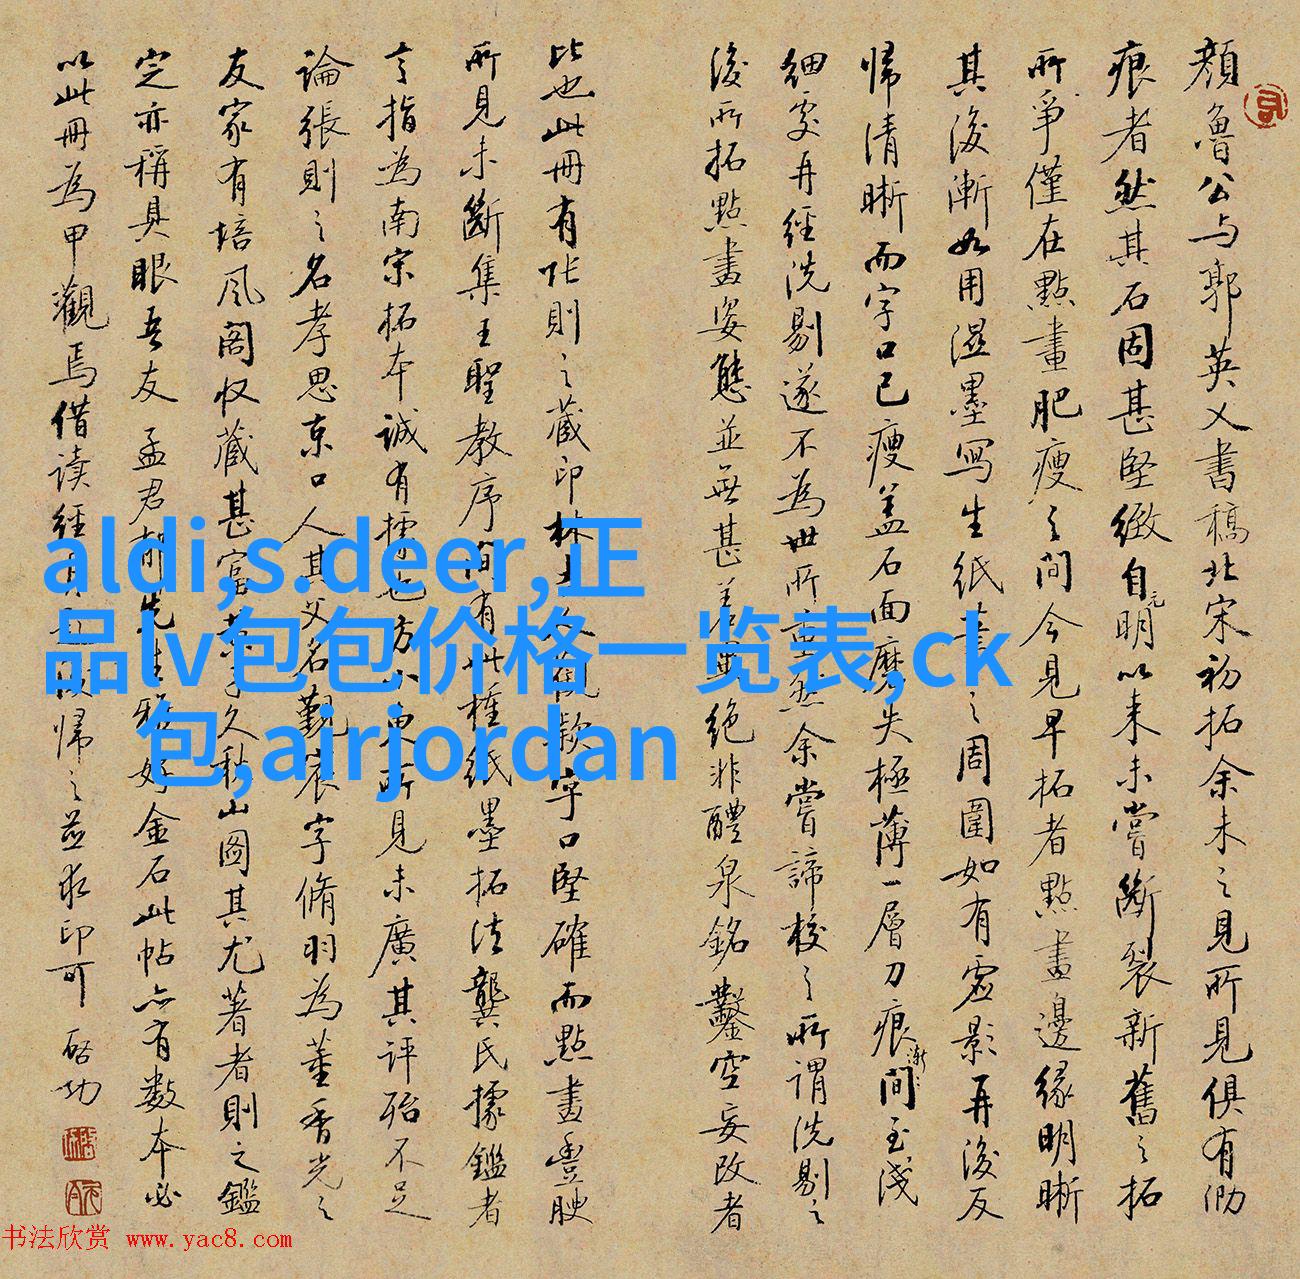 顏魯公与郭英乂書稿北宋初拓余未之見所見俱有泐
痕者然其石固甚堅緻自元明以来未嘗斷裂新舊之拓
所爭僅在點畫肥瘦之间今見早拓者點畫邊緣明晰
其後漸如用濕墨寫生紙書之周圍如有虛影再後反
帰清晰而字口已瘦盖石面磨失極薄一層刀痕漸間至淺
細處再經洗剔遂不為世所重然余嘗諦校之所謂洗剔之
後所拓點畫姿態並無甚差異絕非醴泉銘鑿空妄改者
比也此冊有张則之蔵印林吉人觀款字口堅確而點畫豐腴
所見未斷集王聖教序間有此種紙墨拓法龔氏據鑑者
言指為南宋拓本誠有據也方小東所見未廣其評殆不足
論張則之名孝思京口人其父名覲宸字脩羽為董香光之
友家有培风阁收蔵甚富黄子久秋山圖其尤著者則之鑑
定亦稱具眼吾友孟君先生雅好金石此帖亦有数本必
以此冊為甲觀焉借读经月後帰之并求印可 启功
aldi,s.deer,正
品lv包包价格一览表,ck
包,airjordan
书法欣赏 www.yac8.com